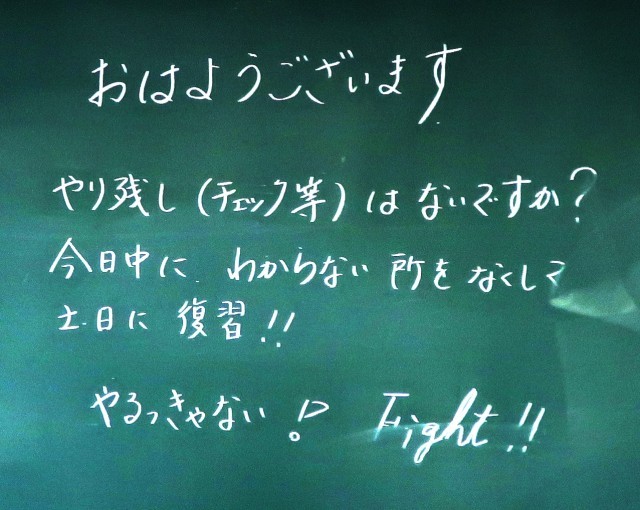 おはようございます
やり残し(チェック等)はないですか?
今日中に わからない所をなくして
土日に復習!!
やるっきゃない!? Fight!!